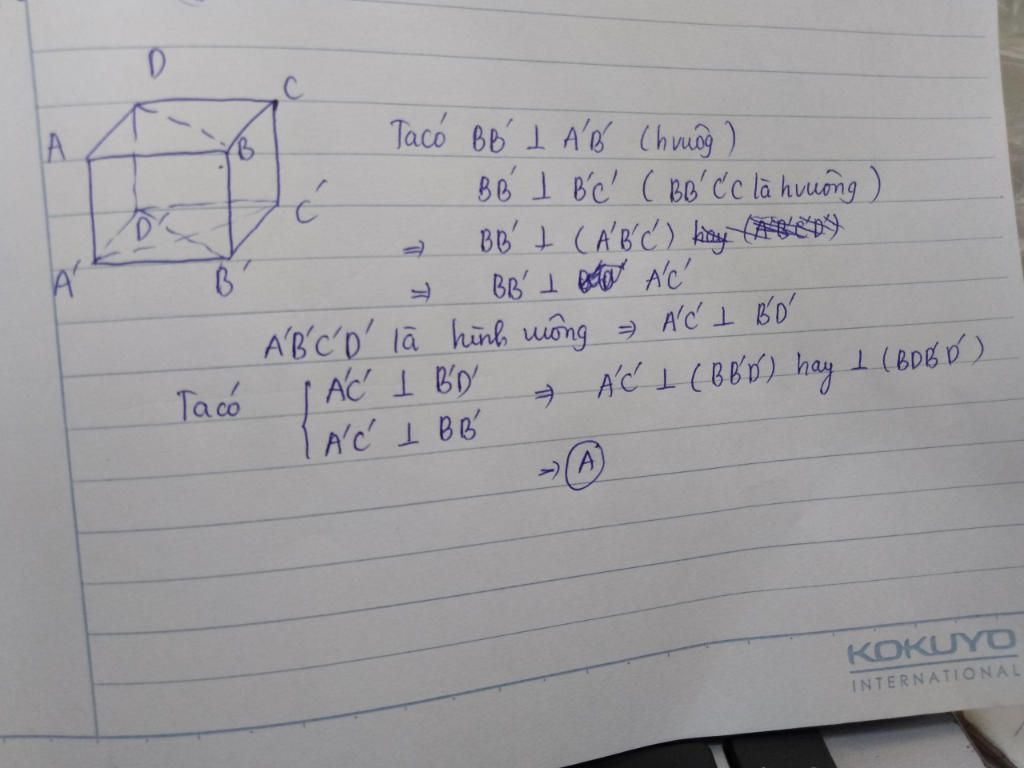 D
C
A
B
C'
D'
A'
B'
Ta có BB' ⊥ A'B' (hvuôg)
BB' ⊥ B'C' (BB'C'C là hvuông)
⇒ BB' ⊥ (A'B'C') hay (A'B'C'D')
⇒ BB' ⊥ A'C'
A'B'C'D' là hình vuông ⇒ A'C' ⊥ B'D'
Ta có { A'C' ⊥ B'D' ⇒ A'C' ⊥ (BB'D') hay ⊥ (BDB'D')
A'C' ⊥ BB'
⇒ A
KOKUYO
INTERNATIONAL